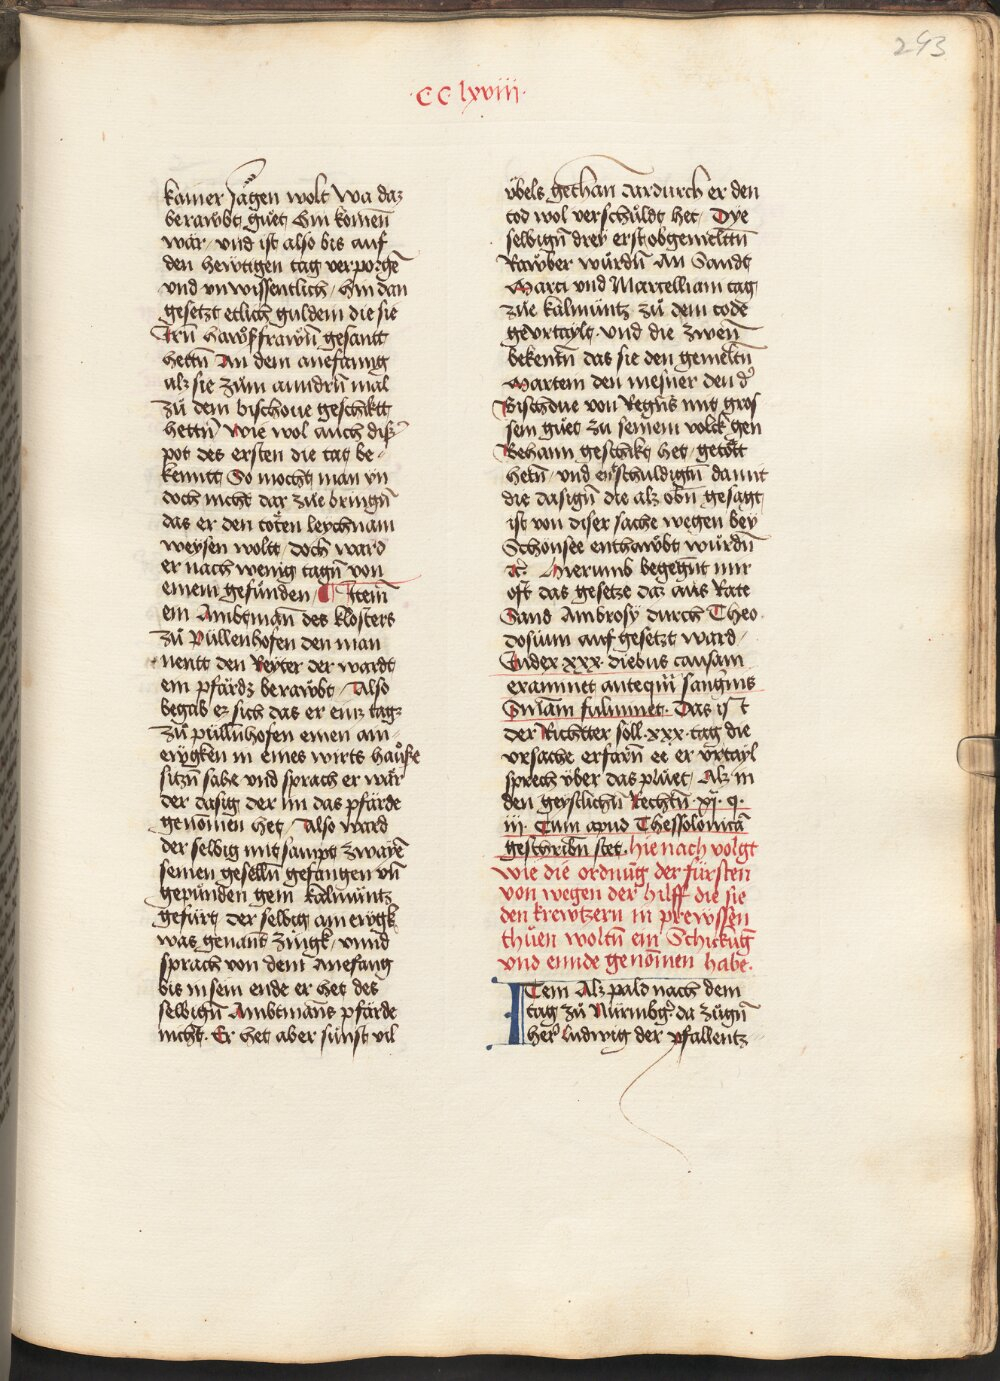 243
·CC lxviii·
kainer sagen wolt wa daz
berawbt guet Hin komen̄
wär / und ist also bis auf
den hewtigen tag verporgē
vnd vnwissentlich / Hin dan
gesetzt etlich guldein die sie
Irn̄ hawsfrawn̄ gesantt
hettn̄ An dem anefanng
alz sie zům anndrn̄ mal
zů dem bischoue geschiktt
hettn̄ Wie wol auch diß
pot des ersten die tat be-
kenntt So mocht man yn
doch nicht dar zůe bringn̄
das er den totten leychnam
weysen woltt / doch ward
er nach wenig tagn̄ von
einem gefůnden / ¶ Item̄
ein Ambtman̄ des klosters
zů Püllenhofen den man
nentt den Reyter der wardt
ein pfärdz berawbt / Also
begab ez sich das er einz tagz
zů püllnhofen einen ain-
erygken in eines wirts hawse
sitzn̄ sahe vnd sprach er wär
der dasig der im das pfärde
genomen het / Also ward
der selbig mitsampt zwayē
seinen geselln̄ gefangen vn̄
gepunden gein kalmüntz
gefürt der selbig ainerygk
was genant Züngk / vnnd
sprach von dem Anefang
bis in sein ende er het des
selbign̄ Ambtman̄s pfärde
nicht. Er het aber sünst vil
übels gethan dardurch er den
tod wol verschůldt het / Dye
selbign̄ drey erst obgemeltn̄
Rawber würdn̄ An Sandt
Marci vnd Marcelliani tag
zůe kalmüntz zů dem tode
geürtaylt vnd die zwen̄
bekentn̄ das sie den gemeltn̄
Martein den mesner den d'
Bischoue von Regn̄s mit gros
sem guet zu seinem volck gen
Behaim geschikt het / getött
hetn̄ / vnd entschuldigtn̄ damit
die dasign̄ die alz obn̄ gesagt
ist von diser sache wegen bey
Schonsee enthawbt würdn̄
Hierumb begegnt mir
oft das gesetze daz aus Rate
Sand Ambrosy durch Theo
dosium auf gesetzt ward /
Iudex xxx diebus causam
examinet anteqm̄ sangnis
Sniam fulminet. Das ist
der Richtter soll .xxx. tag die
vrsache erfarn̄ ee er vrtayl
sprech über das pluet / Alz in
den geystlichn̄ Rechtn̄ .xj. q.
iii. Cum apud Thessolonicā
geschribn̄ stet. hie nach volgt
wie die ordnūg der fürsten
von wegen der hilff die sie
den krewtzern in prewssen
thůen woltn̄ ein Schickūg
vnd ennde genomen habe.
ITem Alz pald nach dem
tag zů Nürmbg' da zůgn̄
her' ludwig der pfallentz